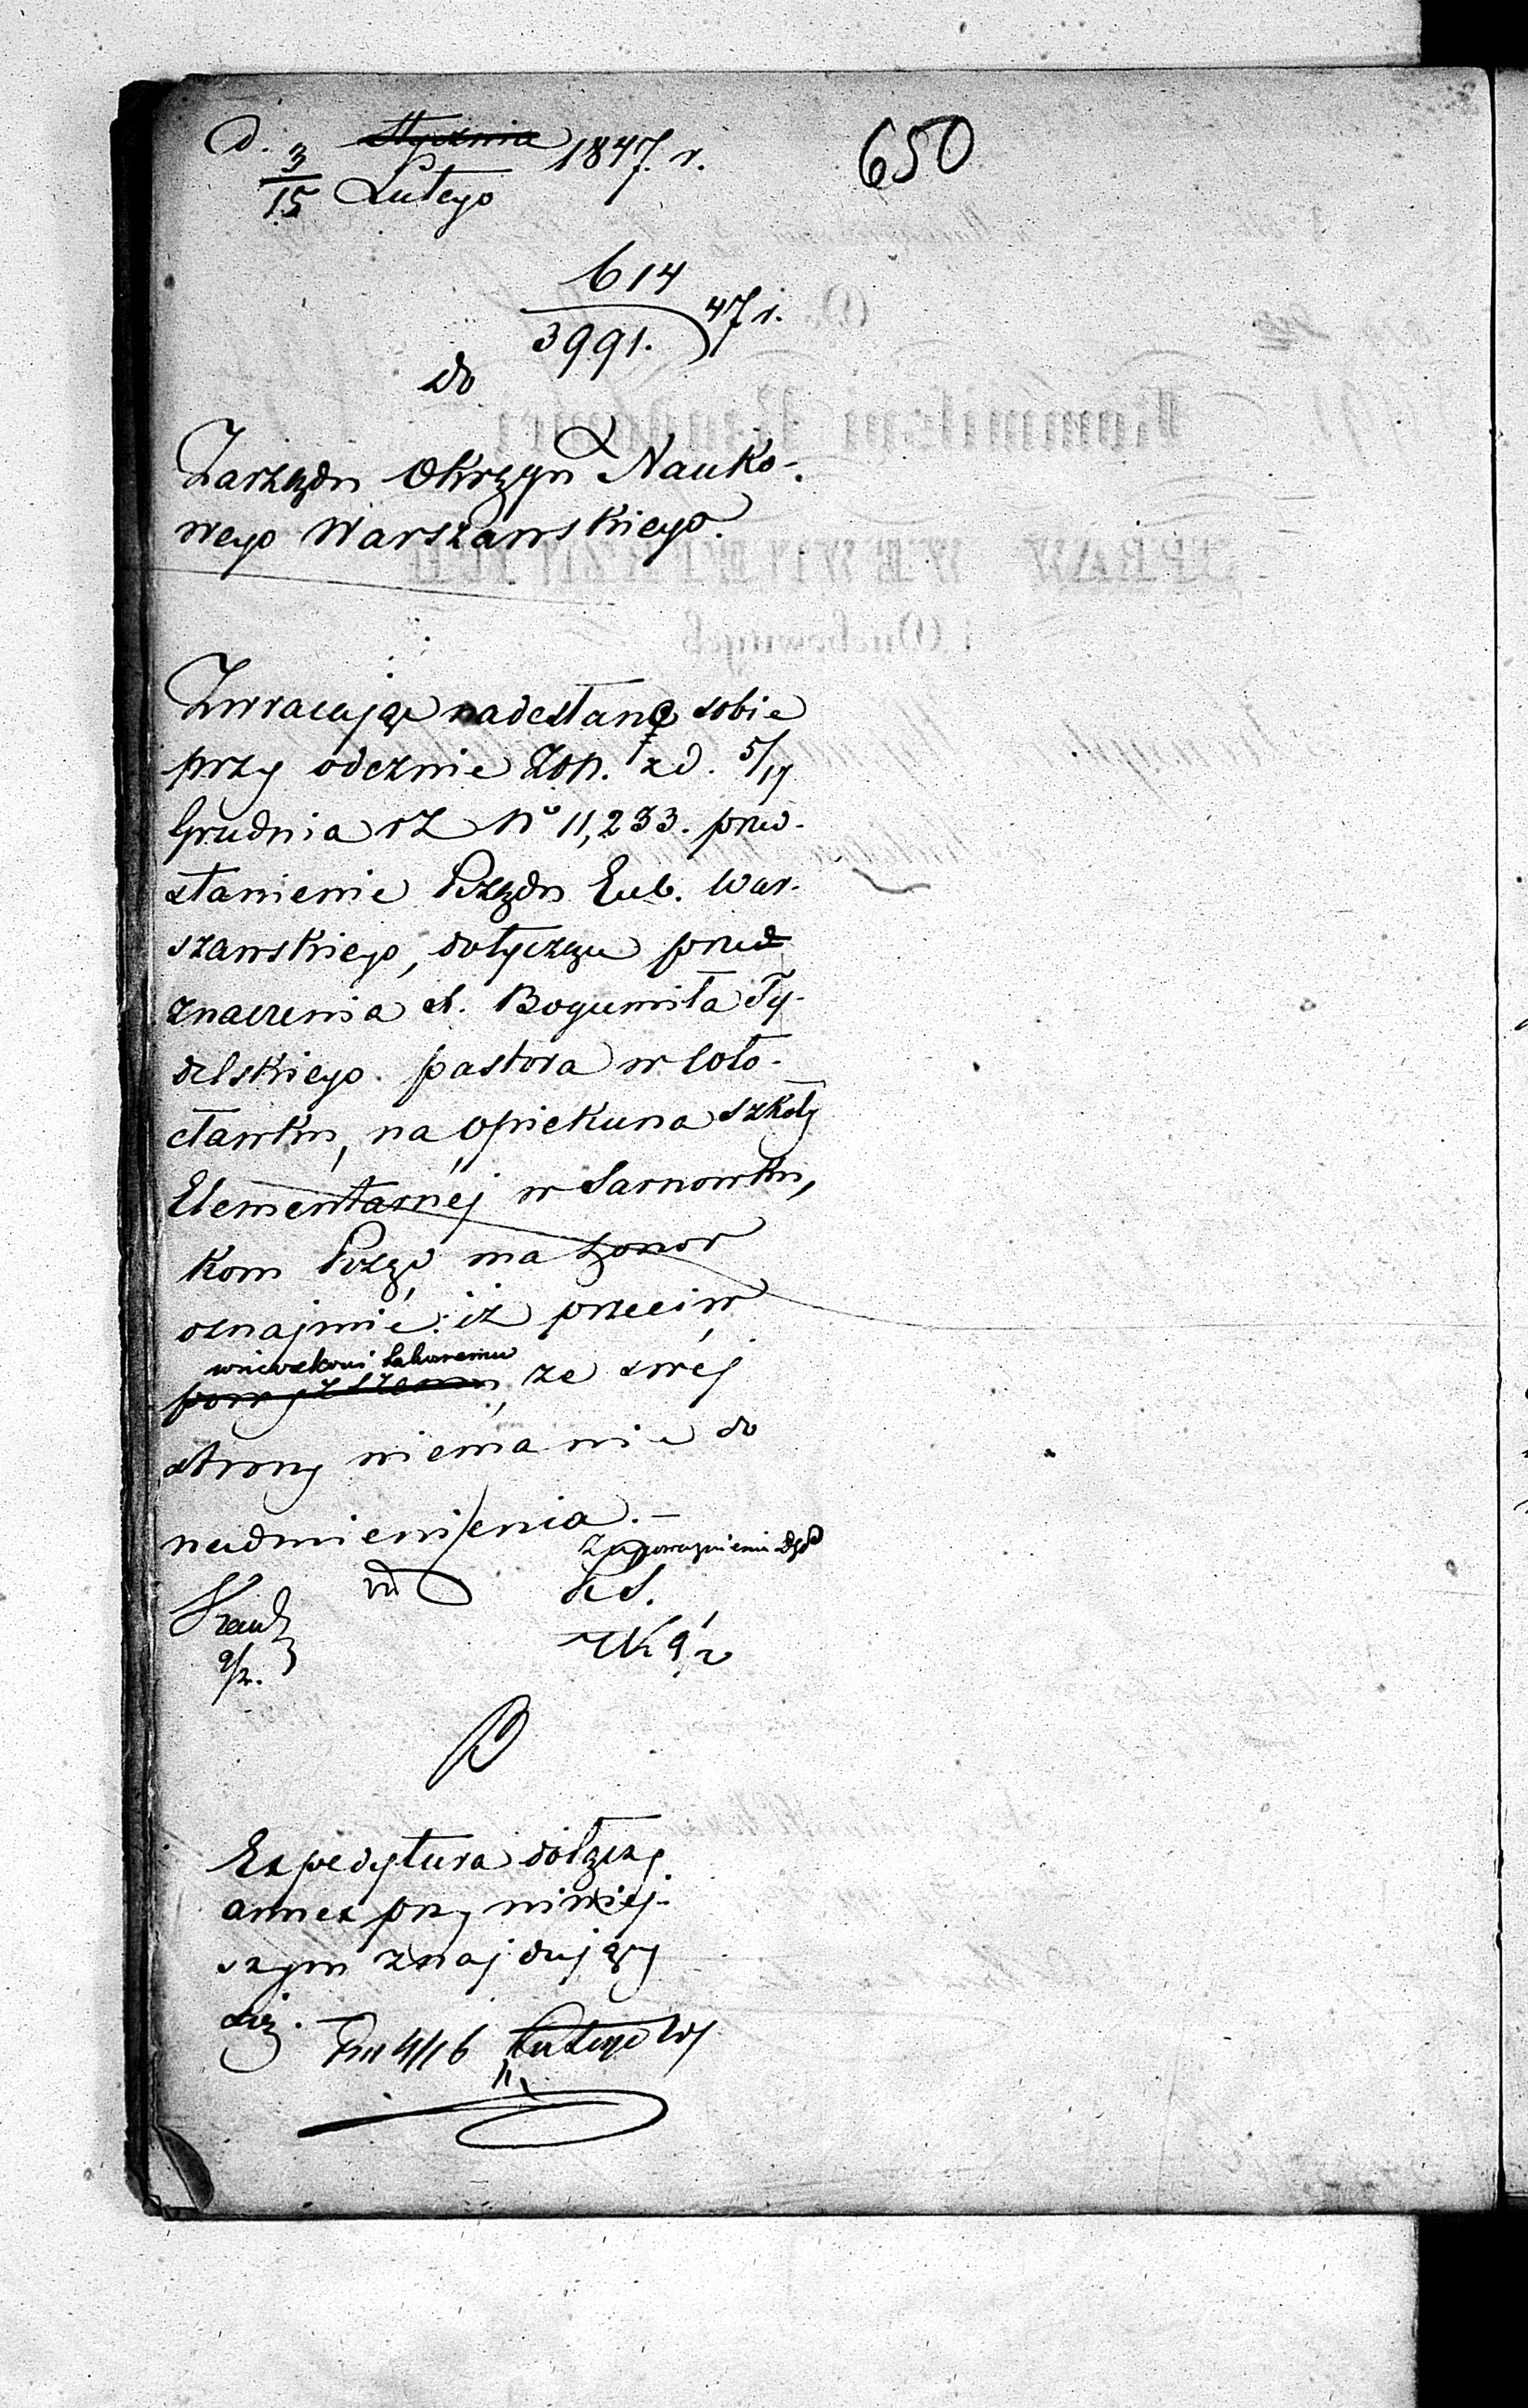 650
d. 3/15 stycznia Lutego 1847. r.
614
3991. 47 r.
do
Zarządu Okręgu Nauko-
wego Warszawskiego.
Zwracając nadesłane sobie
przy odezwie ZON. z d. 5/17
Grudnia r z N° 11,233. przed-
stawienie Rządu Gub. War-
szawskiego, dotyczące prze
znaczenia X. Bogumiła Ty-
delskiego pastora w
na Opiekuna szkoły
Elementarnéj w Sarnowku,
Kom Rząd, ma honor
oznajmić: iż przeciw
wnioskowi takowemu
powyższemu, ze swéj
strony niema nic do
nadmienienia.–
z upoważnienia
9/2.
Expedytura dołączy
annex przy niniej-
szym znajdujący
się. –
4/16 Lutego